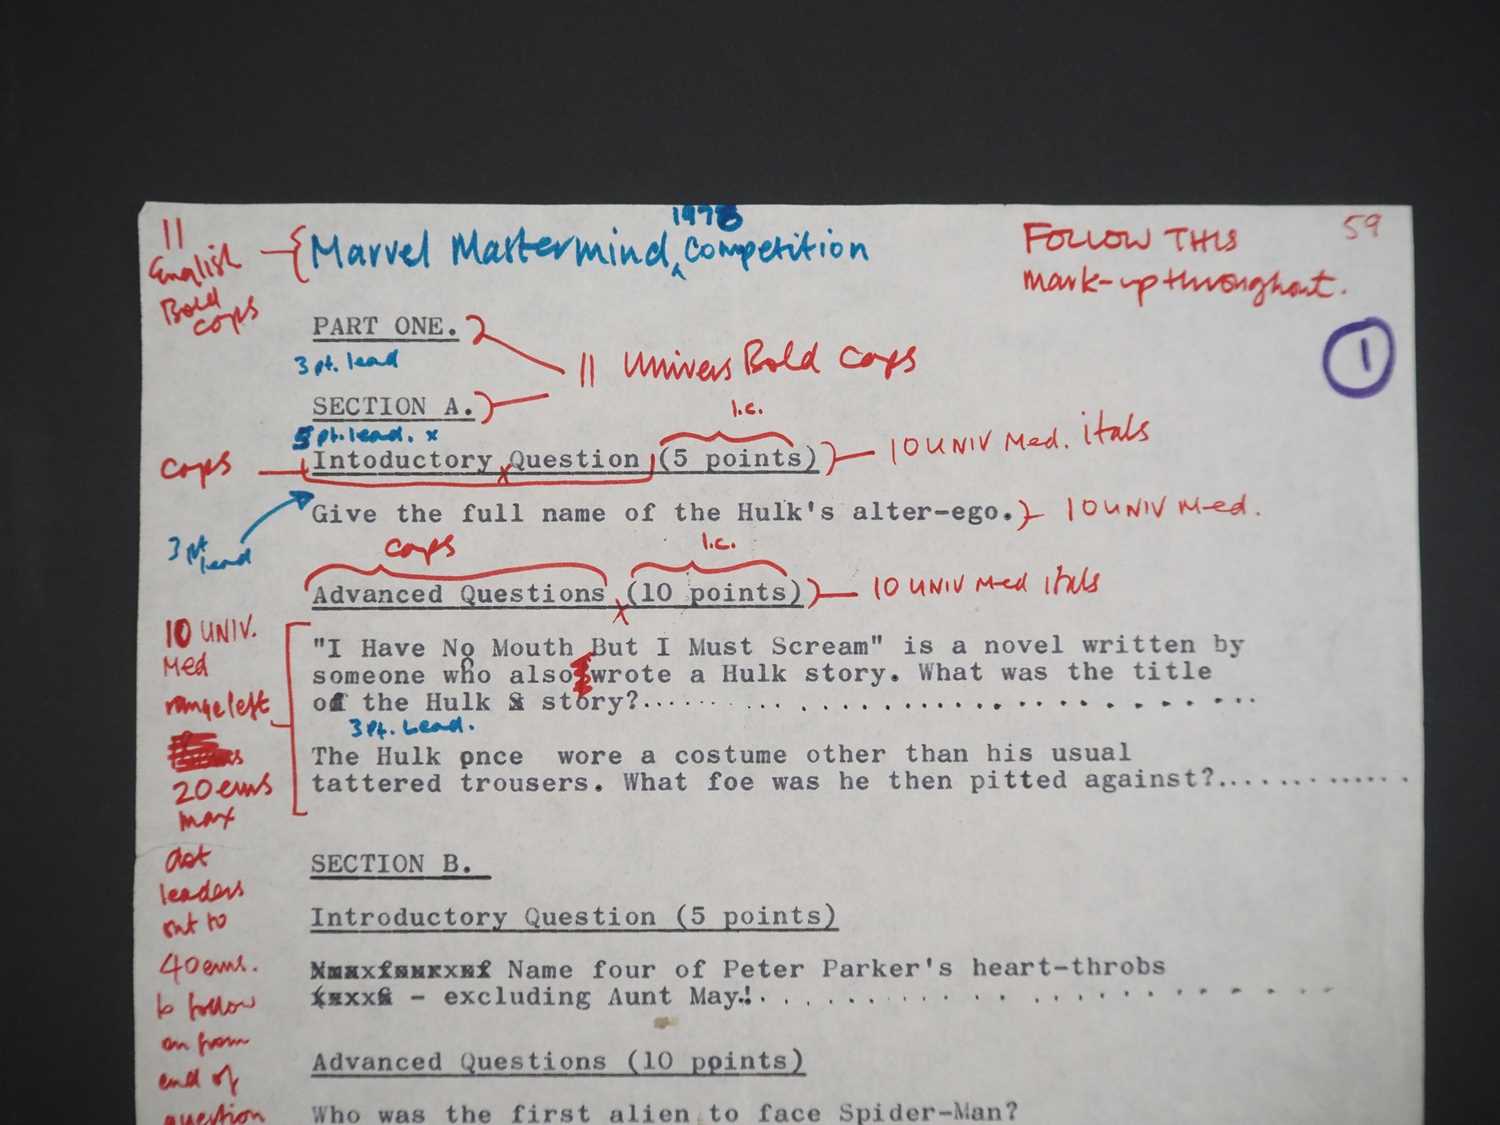 1978
11 English Bold caps
Marvel Mastermind ‸ Competition
FOLLOW THIS mark-up throughout.
59
1
PART ONE.
3 pt. lead
11 Univers Bold caps
SECTION A.
5 pt. lead. x
l.c.
caps
Intoductory Question (5 points)
10 UNIV Med. itals
Give the full name of the Hulk's alter-ego.
10 UNIV Med.
3 pt lead
caps
l.c.
Advanced Questions (10 points)
10 UNIV Med itals
10 UNIV. Med range left
20 ems max
dot leaders out to 40 ems. to follow on from end of question
"I Have No Mouth But I Must Scream" is a novel written by
someone who also wrote a Hulk story. What was the title
of the Hulk story?....................
3 pt. Lead.
The Hulk once  wore a costume other than his usual
tattered trousers. What foe was he then pitted against?.............
SECTION B.
Introductory Question (5 points)
Name four of Peter Parker's heart-throbs
- excluding Aunt May!....................
Advanced Questions (10 points)
Who was the first alien to face Spider-Man?